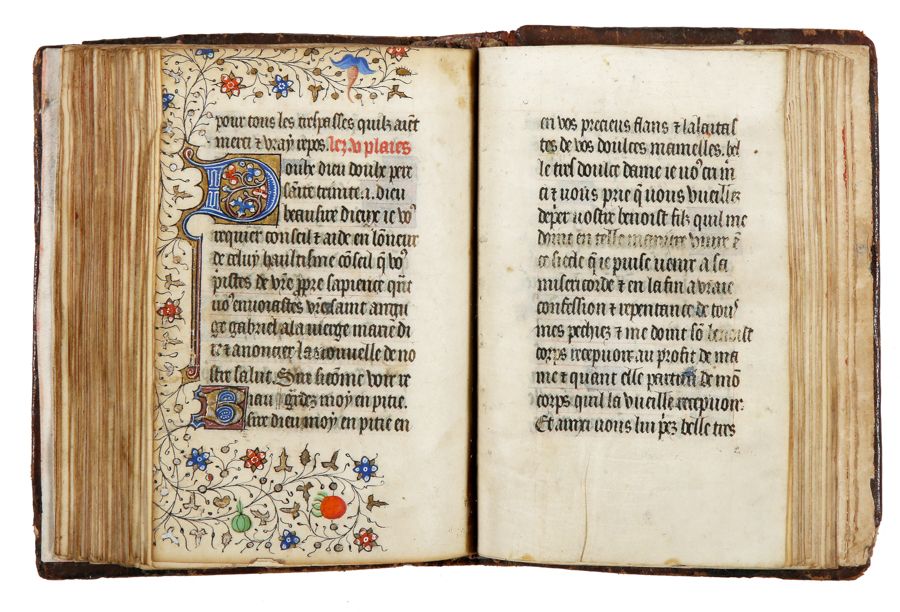 pour tous les trespasses quilz aiēt
merci ⁊ vray repos. les v plaies
Doulz dieu doulz pere
saīte trinite .i. dieu
beausire dieux ie voꝰ
requier conseil ⁊ aide en lōneur
de celuy haultisme cōseil q̄ voꝰ
preistes de vr̄e ppre sapience qūt
voꝰ enuoiastes vr̄e saint angu
ge gabriel a la vierge marie di
re ⁊ anoncier la nouuelle de no
stre salut. Sire si cōme voire
gardez moy en pitie.
Sire dieu moy en pitie en
en vos precieus flans ⁊ lalaitas
tes de vos doulces mamelles. bel
le tres doulce dame ie voꝰ en m̄
ci ⁊ vous prie q̄ vous vueilliez
deper nostre benoist filz quil me
doint en telle maniere viure ē
ce siecle q̄ ie puise venir a sa
misericorde ⁊ en la fin a vraie
confession ⁊ repentance de touꝰ
mes pechiez ⁊ me doint sō benoist
corps recepuoir. au profit de ma
me ⁊ quant elle partira de mō
corps quil la vueille recepuoir.
Et ainsi vous lui prez belle tres